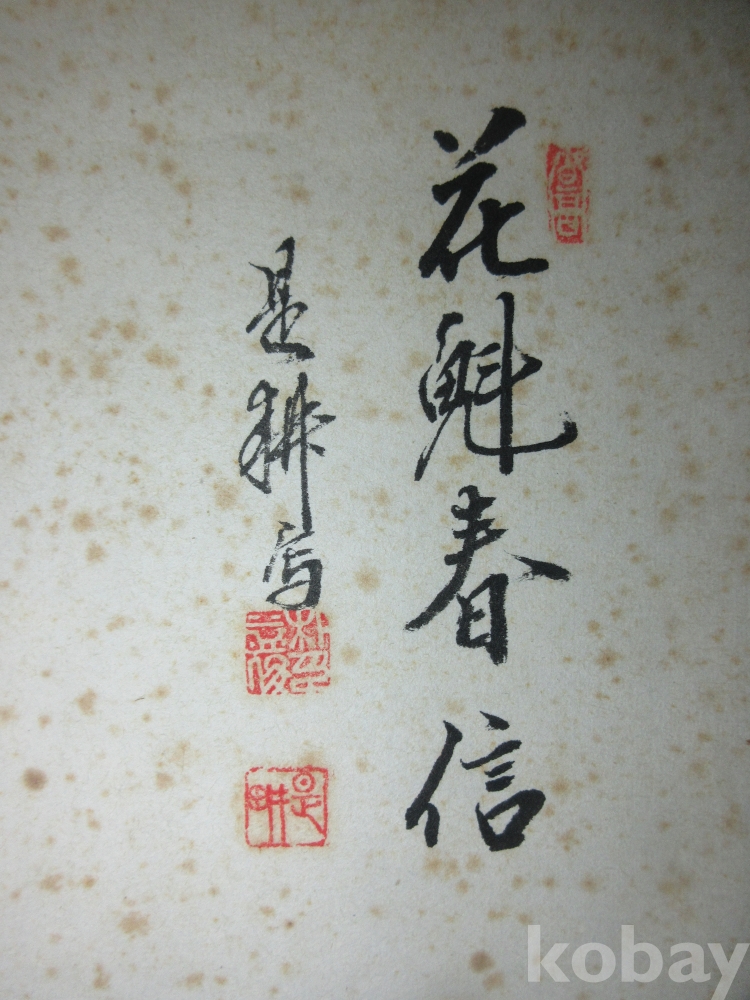 花魁春信
是耕写
是耕
kobay